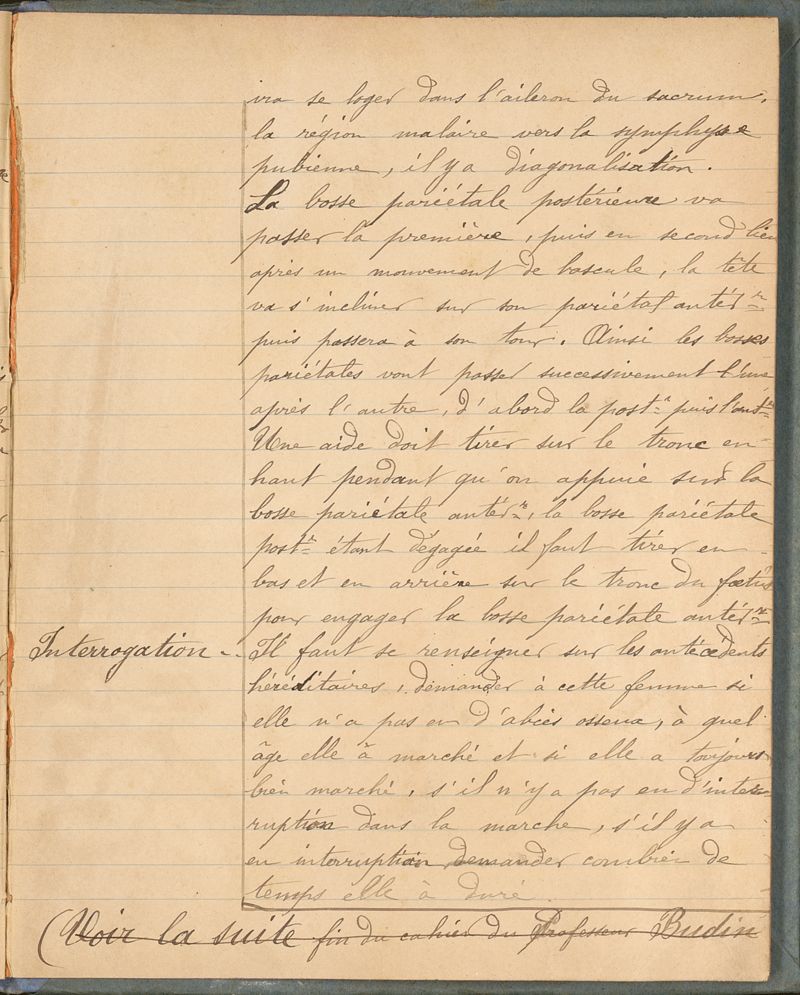 va se loger dans l'aileron du sacrum,
la région malaire vers la symphyse
pubienne, il y a diagonalisation.
La bosse pariétale postérieure va
passer la première, puis en second lieu
après un mouvement de bascule, la tête
va s'incliner sur son pariétal antérre
puis passera à son tour. Ainsi les bosses
pariétales vont passer successivement l'une
après l'autre, d'abord la postre puis l'antre
Une aide doit tirer sur le tronc en
haut pendant qu'on appuie sur la
bosse pariétale antérre, la bosse pariétale
postre étant dégagée il faut tirer en
bas et en arrière sur le tronc du fœtus
pour engager la bosse pariétale antérre
Interrogation - Il faut se renseigner sur les antécédents
héréditaires, demander à cette femme si
elle n'a pas eu d'abcès osseux, à quel
âge elle à marché et si elle a toujours
bien marché, s'il n'y a pas eu d'inter-
ruption dans la marche, s'il y a
eu interruption demander combien de
temps elle à duré.
(Voir la suite fin du cahier du Professeur Budin